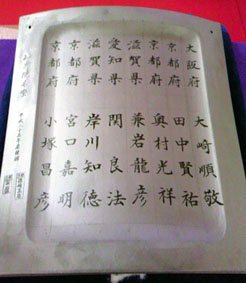 大阪府 大崎順敬
京都府 田中賢祐
京都府 奥村光祥
滋賀県 兼岩龍彦
愛知県 関良法
滋賀県 岸川知徳
京都府 宮口嘉明
京都府 小塚昌彦